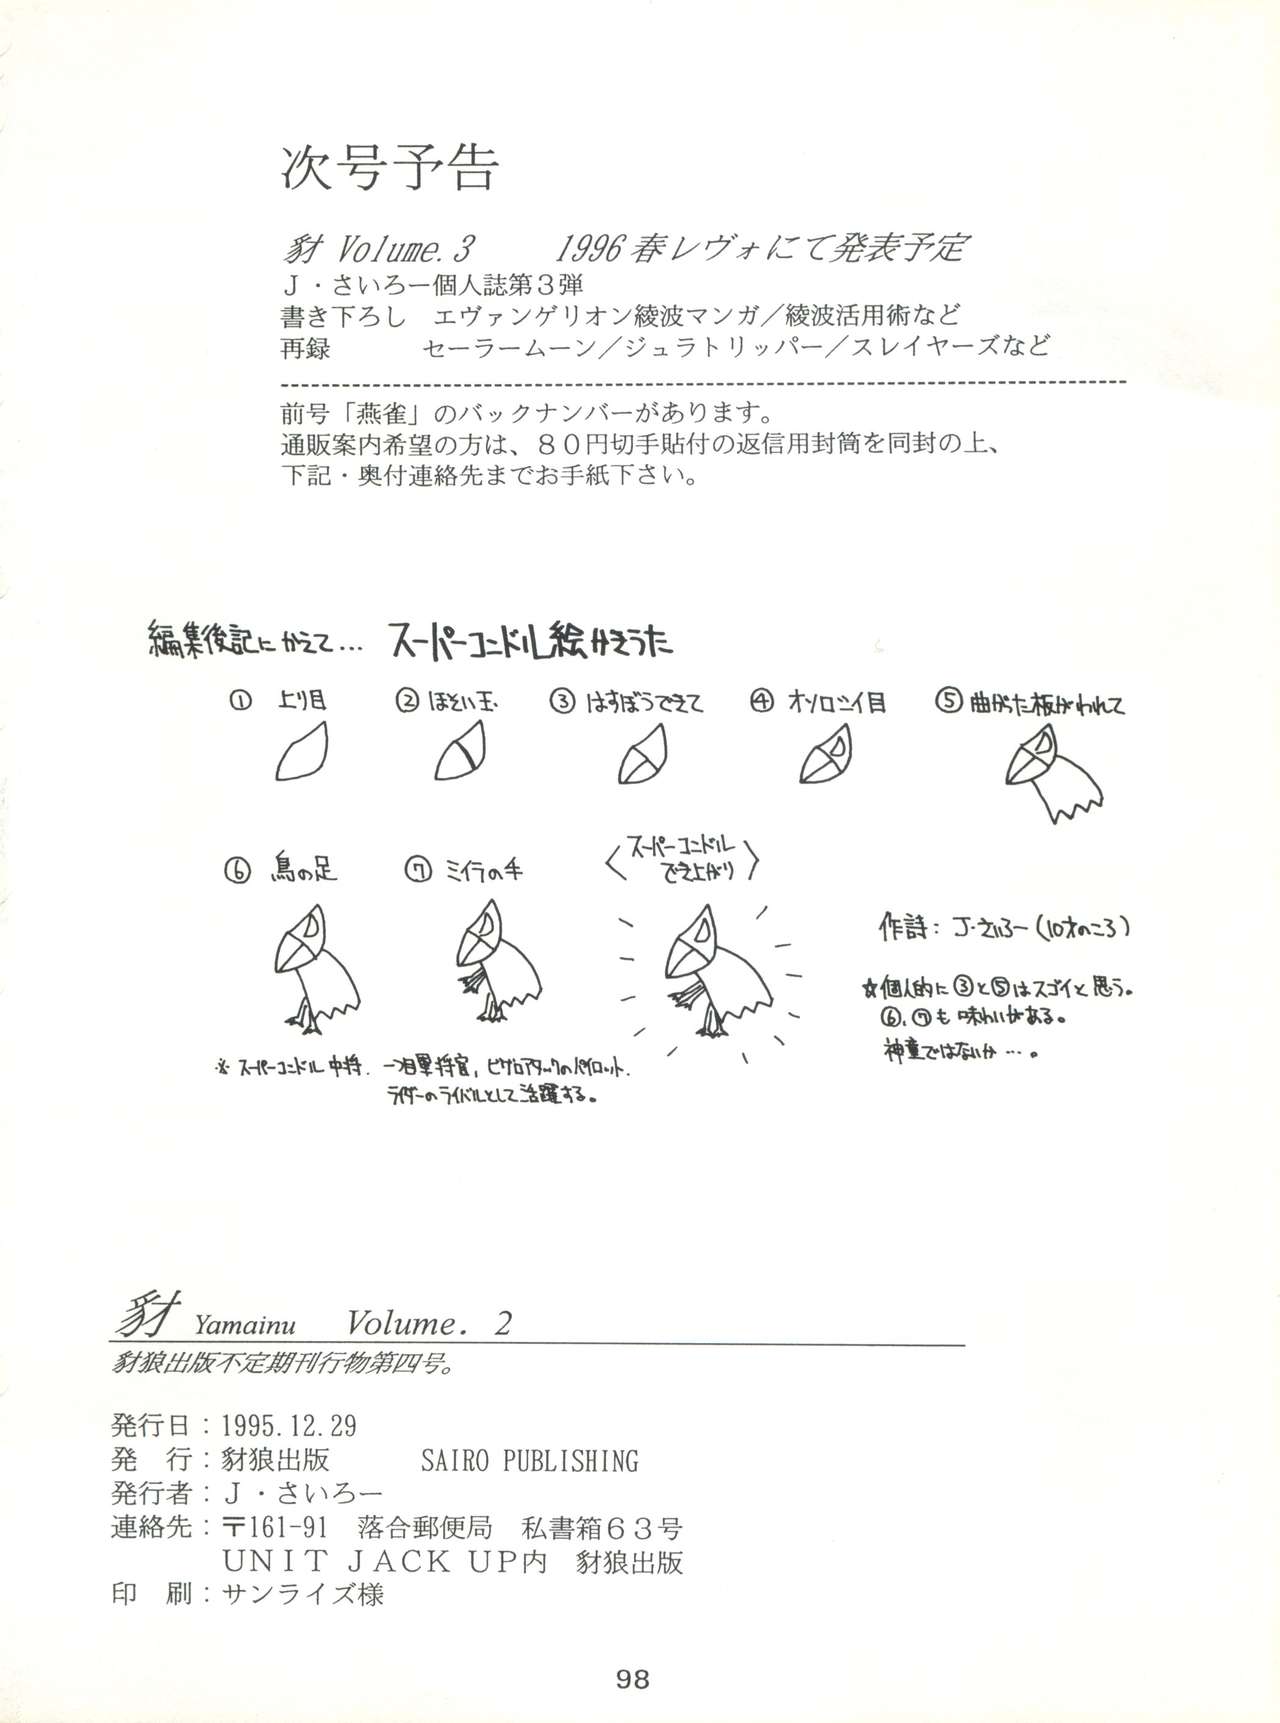 次号予告
豺 Volume.3　1996春レヴォにて発表予定
J・さいろー個人誌第3弾
書き下ろし　エヴァンゲリオン綾波マンガ／綾波活用術など
再録　セーラームーン／ジュラトリッパー／スレイヤーズなど
前号「燕雀」のバックナンバーがあります。
通販案内希望の方は、８０円切手貼付の返信用封筒を同封の上、
下記・奥付連絡先までお手紙下さい。
編集後記にかえて… スーパーコンドル絵かきうた
① 上り目
② ほそい玉
③ はすぼうできて
④ オソロシイ目
⑤ 曲がった板がわれて
⑥ 鳥の足
⑦ ミイラの手
〈スーパーコンドル
でき上がり〉
作詩：J・さいろー（10才のころ）
☆個人的に③と⑤はスゴイと思う。
⑥，⑦も味わいがある。
神童ではないか…。
※ スーパーコンドル中将．
ライダーのライバルとして活躍する。
豺 Yamainu Volume. 2
豺狼出版不定期刊行物第四号。
発行日：1995.12.29
発　行：豺狼出版　SAIRO PUBLISHING
発行者：J・さいろー
連絡先：〒161-91　落合郵便局　私書箱６３号
ＵＮＩＴ ＪＡＣＫ ＵＰ内　豺狼出版
印　刷：サンライズ様
98